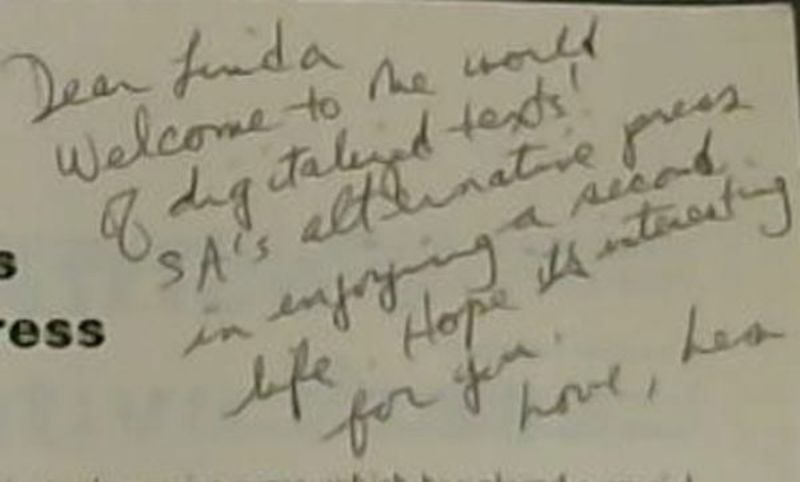 Dear Linda
Welcome to the world
of digitalised texts!
SA's alternative press
in enjoying a second
life. Hope its interesting
for you.
Love,
s
ress